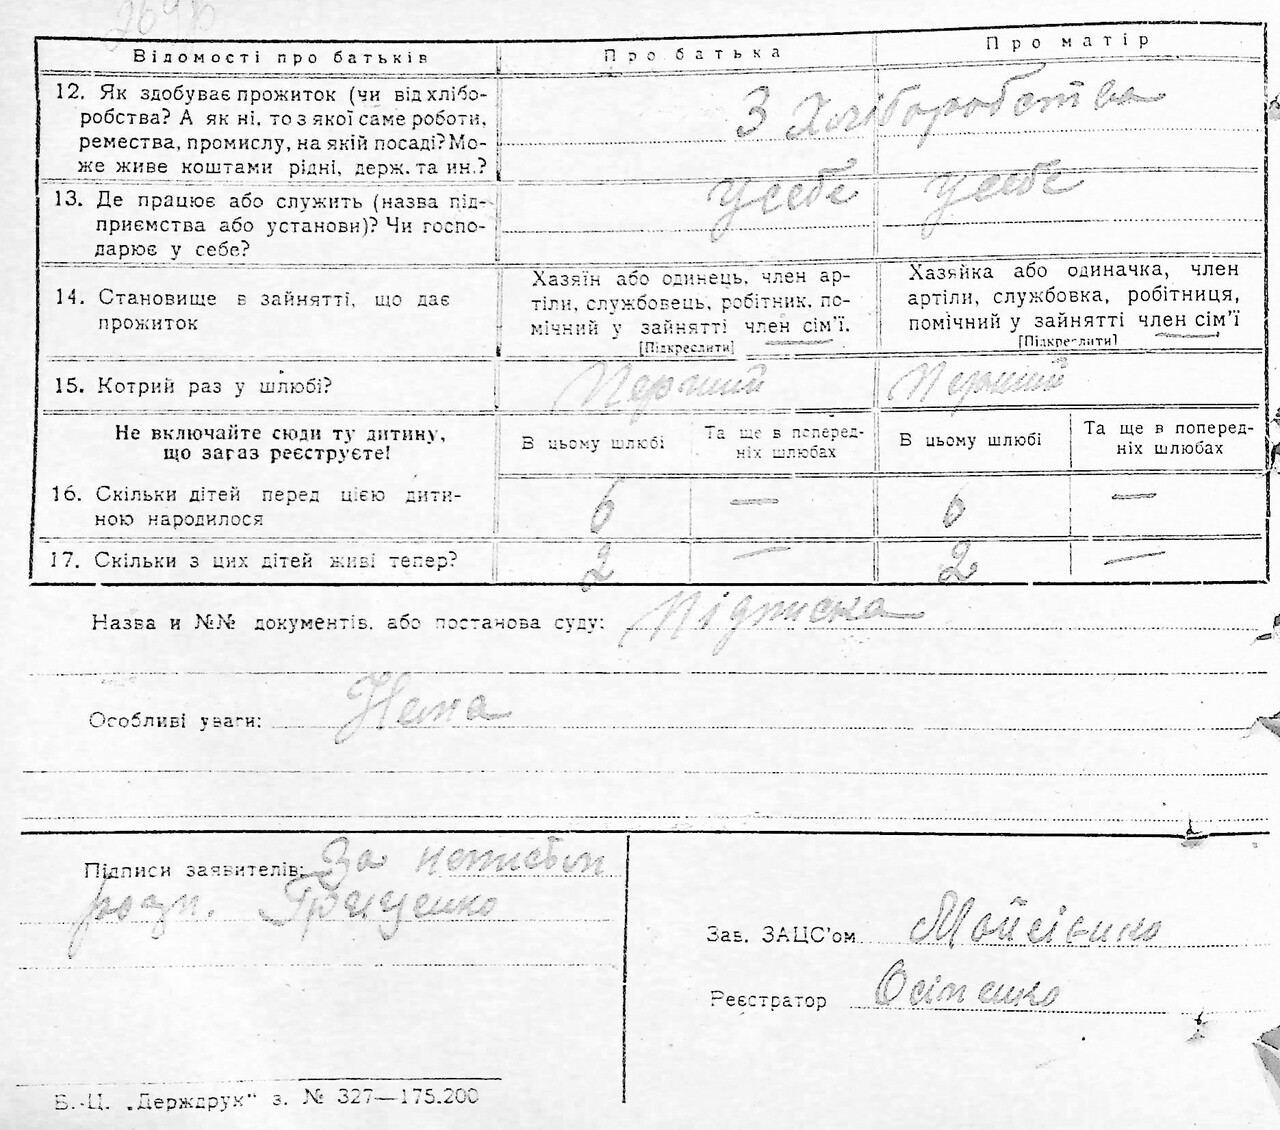 Відомості про батьків Про батька Про матір
12. Як здобуває прожиток (чи від хлібо-
робства? А як ні, то з якої саме роботи,
ремества, промислу, на якій посаді? Мо-
же живе коштами рідні, держ. та ин.?
З Хліборобства
13. Де працює або служить (назва під-
приємства або установи)? Чи госпо-
дарює у себе?
у себе у себе
14. Становище в зайнятті, що дає
прожиток
Хазяїн або одинець, член ар-
тіли, службовець, робітник, по-
мічний у зайнятті член сім'ї.
[Підкреслити]
Хазяйка або одиначка, член
артіли, службовка, робітниця,
помічний у зайнятті член сім'ї
[Підкреслити]
15. Котрий раз у шлюбі? Перший Перший
Не включайте сюди ту дитину,
що зараз реєструєте!
В цьому шлюбі
Та ще в поперед-
ніх шлюбах
В цьому шлюбі
Та ще в поперед-
ніх шлюбах
16. Скільки дітей перед цією дити-
ною народилося
6 — 6 —
17. Скільки з цих дітей живі тепер? 2 — 2 —
Назва и №№ документів, або постанова суду: Підписка
Особливі уваги: Нема
Підписи заявителів: За неписьм
розп. Грищенко
Зав. ЗАЦС'ом Мойсієнко
Реєстратор Осіпенко
Б.-Ц. „Держдрук" з. № 327—175.200